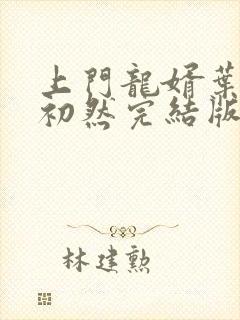 上門龍婿葉
初然完結版
林建勲